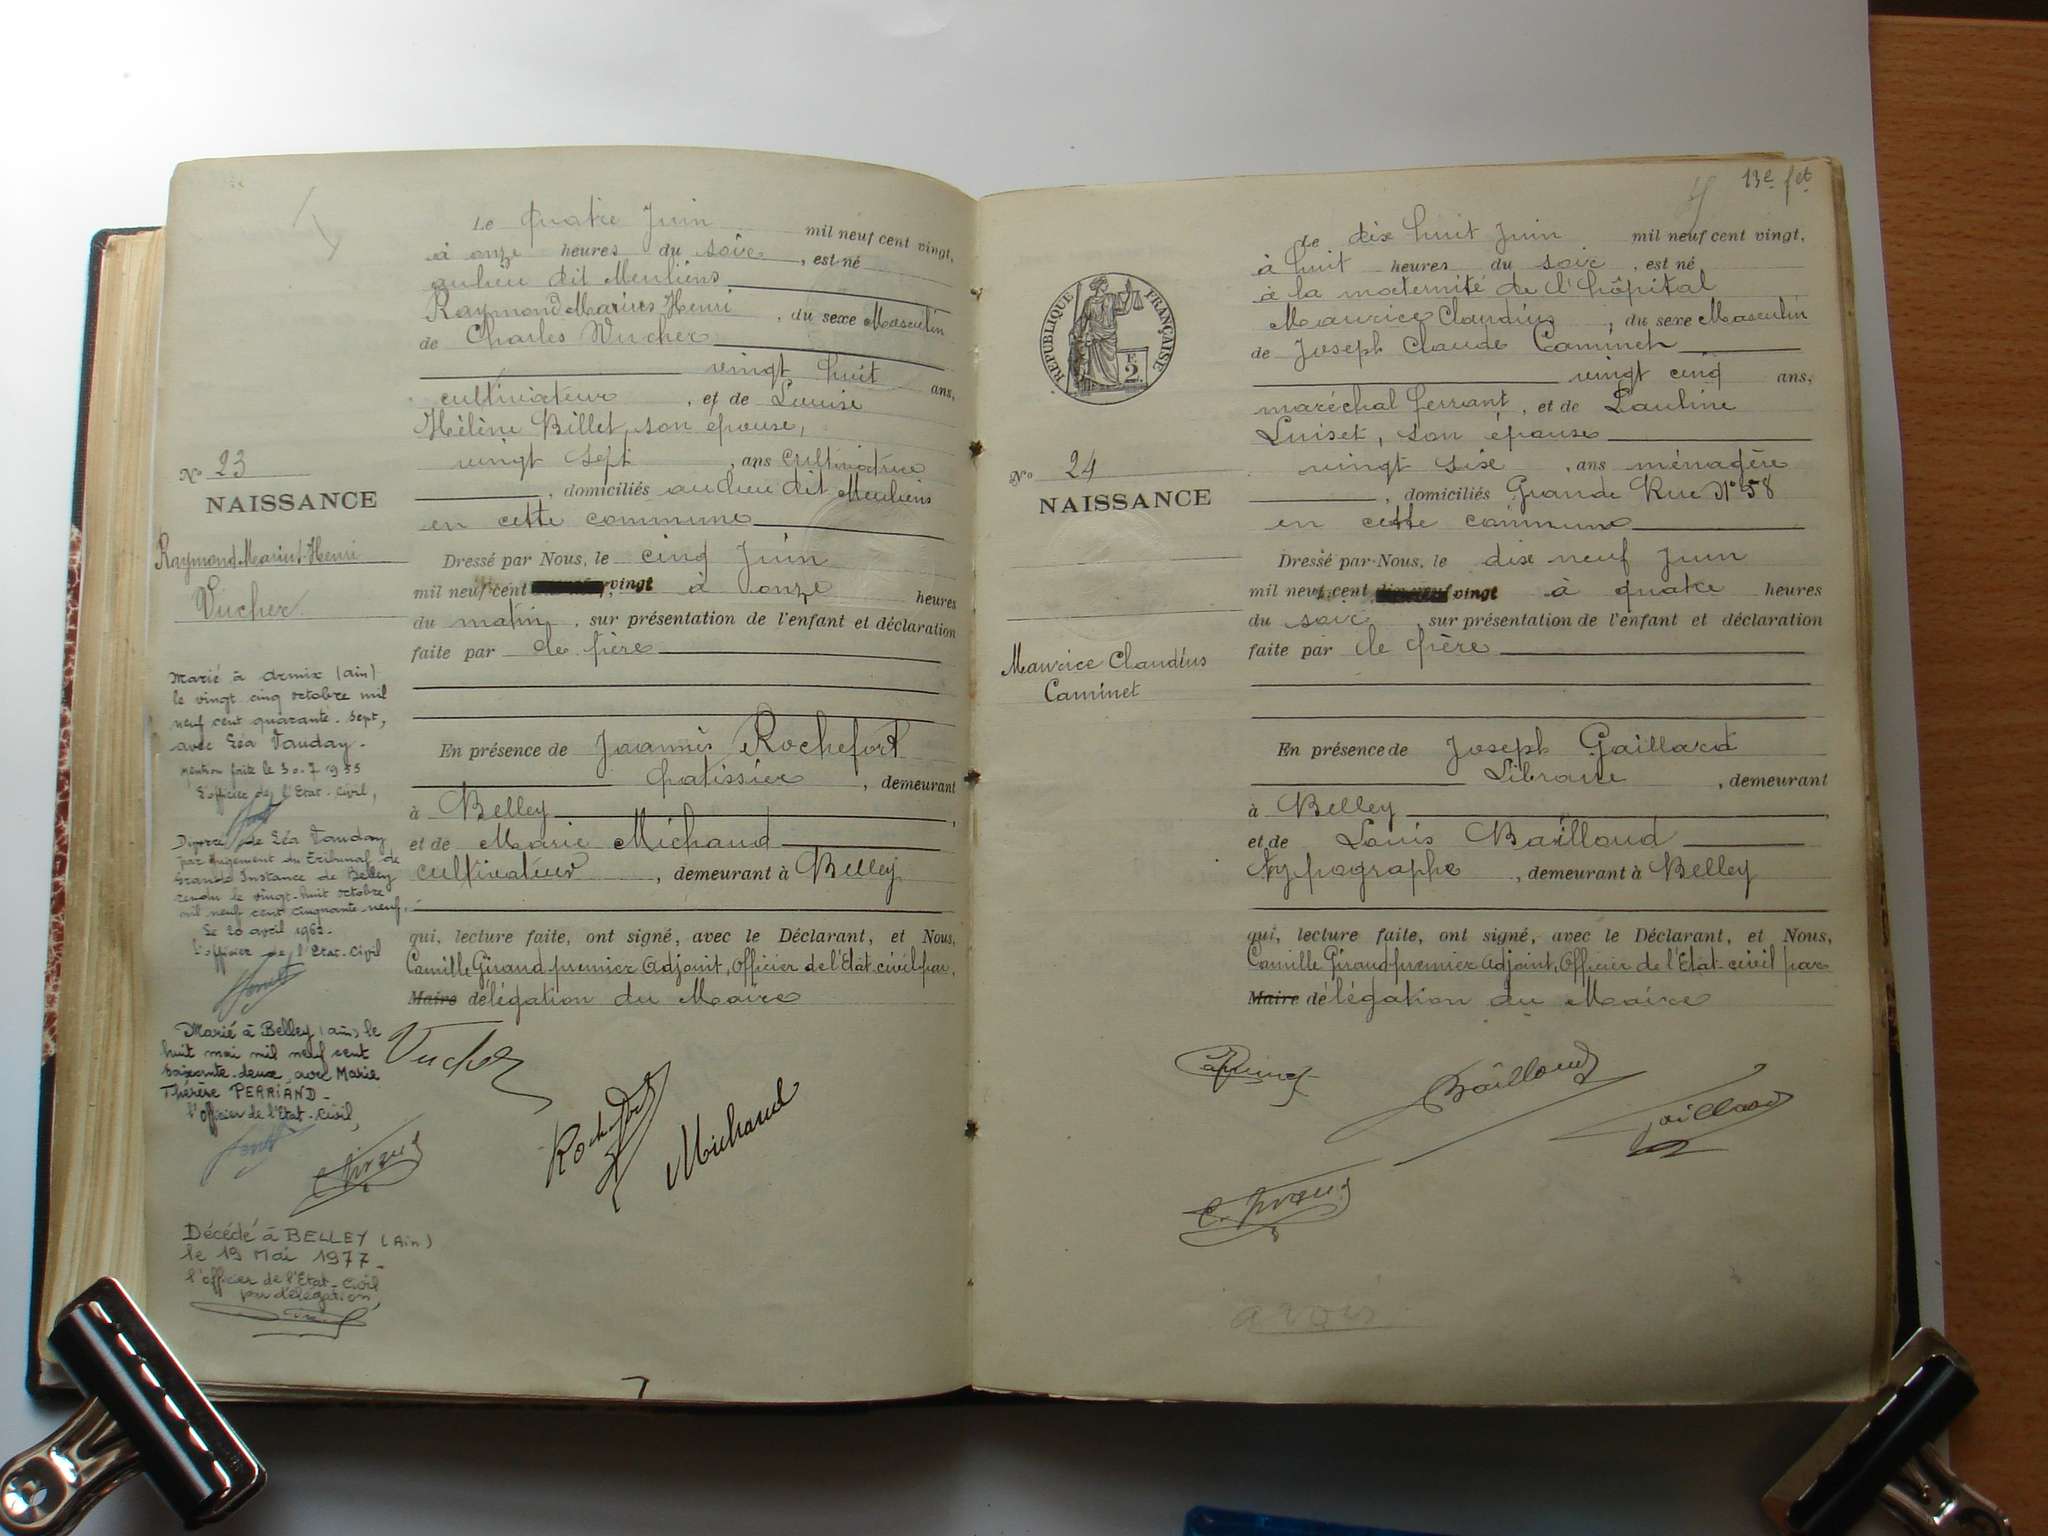 Le quatre Juin mil neuf cent vingt,
à onze heures du soir, est né
au lieu dit Meuliens
Raymond Marius Henri, du sexe Masculin
de Charles Vucher
vingt huit ans,
cultivateur, et de Louise
Hélène Billet, son épouse,
vingt sept, ans cultivatrice
, domiciliés au lieu dit Meuliens
en cette commune
Dressé par Nous, le cinq Juin
mil neuf cent vingt à onze heures
du matin, sur présentation de l'enfant et déclaration
faite par le père
En présence de Joannès Rochefort
patissier, demeurant
à Belley,
et de Marie Michaud
cultivateur, demeurant à Belley
qui, lecture faite, ont signé, avec le Déclarant, et Nous,
Camille Giraud premier Adjoint, Officier de l'Etat-civil par
Maire délégation du Maire
Vucher
Rochefort
Michaud
C. Giraud
No 23
NAISSANCE
Raymond-Marius-Henri
Vucher
Marié à Armix (Ain)
le vingt cinq octobre mil
neuf cent quarante-sept,
avec Léa Vauday-
mention faite le 30.7.1955
l'officier de l'Etat-Civil,
Divorcé de Léa Vauday
par Jugement du Tribunal de
Grande Instance de Belley
rendu le vingt-huit octobre
mil neuf cent cinquante-neuf.
Le 20 avril 1962-
l'officier de l'Etat-Civil
Marié à Belley (Ain) le
huit mai mil neuf cent
soixante-deux, avec Marie
Thérèse PERRIAND-
l'officier de l'Etat-Civil,
Décédé à BELLEY (Ain)
le 19 Mai 1977-
l'officier de l'Etat-Civil
par délégation,
13e fet
Le dix huit Juin mil neuf cent vingt,
à huit heures du soir, est né
à la maternité de l'hôpital
Maurice Claudius, du sexe Masculin
de Joseph Claude Caminet
vingt cinq ans,
maréchal ferrant, et de Pauline
Luiset, son épouse
vingt six, ans ménagère
, domiciliés Grande Rue No 58
en cette commune
Dressé par Nous, le dix neuf Juin
mil neuf cent vingt à quatre heures
du soir, sur présentation de l'enfant et déclaration
faite par le père
En présence de Joseph Gaillard
Libraire, demeurant
à Belley,
et de Louis Bailloud
Typographe, demeurant à Belley
qui, lecture faite, ont signé, avec le Déclarant, et Nous,
Camille Giraud premier Adjoint, Officier de l'Etat-civil par
Maire délégation du Maire
Caminet
Bailloud
Gaillard
C. Giraud
RÉPUBLIQUE FRANÇAISE
F.
2.
No 24
NAISSANCE
Maurice Claudius
Caminet